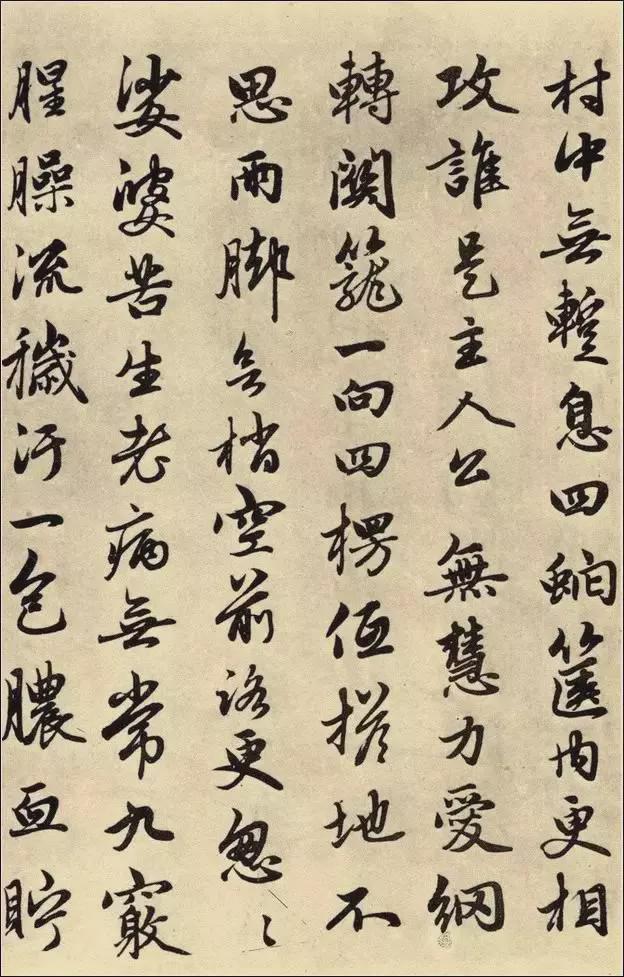 村中無暫息四虵篋内更相
攻誰是主人公無慧力愛網
轉關籠一向四楞低搭地不
思兩脚無梢空前路更怱〻
娑婆苦生老病無常九竅
腥臊流穢汙一包膿血貯